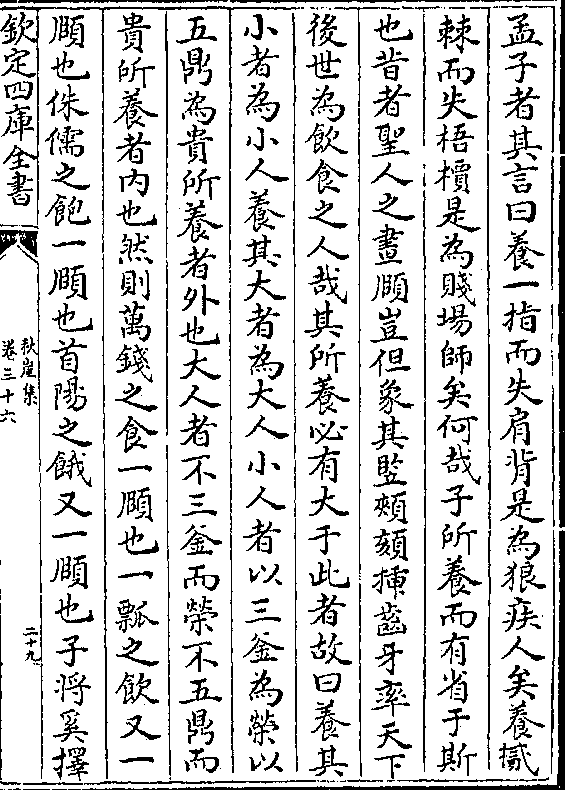 孟子者其言曰養一指而失肩背是為狼疾人矣養樲
棘而失梧檟是為賤場師矣何哉子所養而有省于斯
也昔者聖人之畫頤豈但象其監頰頦揷齒牙率天下
後世為飲食之人哉其所養必有大于此者故曰養其
小者為小人養其大者為大人小人者以三釜為榮以
五鼎為貴所養者外也大人者不三釜而榮不五鼎而
貴所養者内也然則萬錢之食一頤也一瓢之飲又一
頤也侏儒之飽一頤也首陽之餓又一頤也子將奚擇
欽定四庫全書
秋崖集
卷三十六
二十九